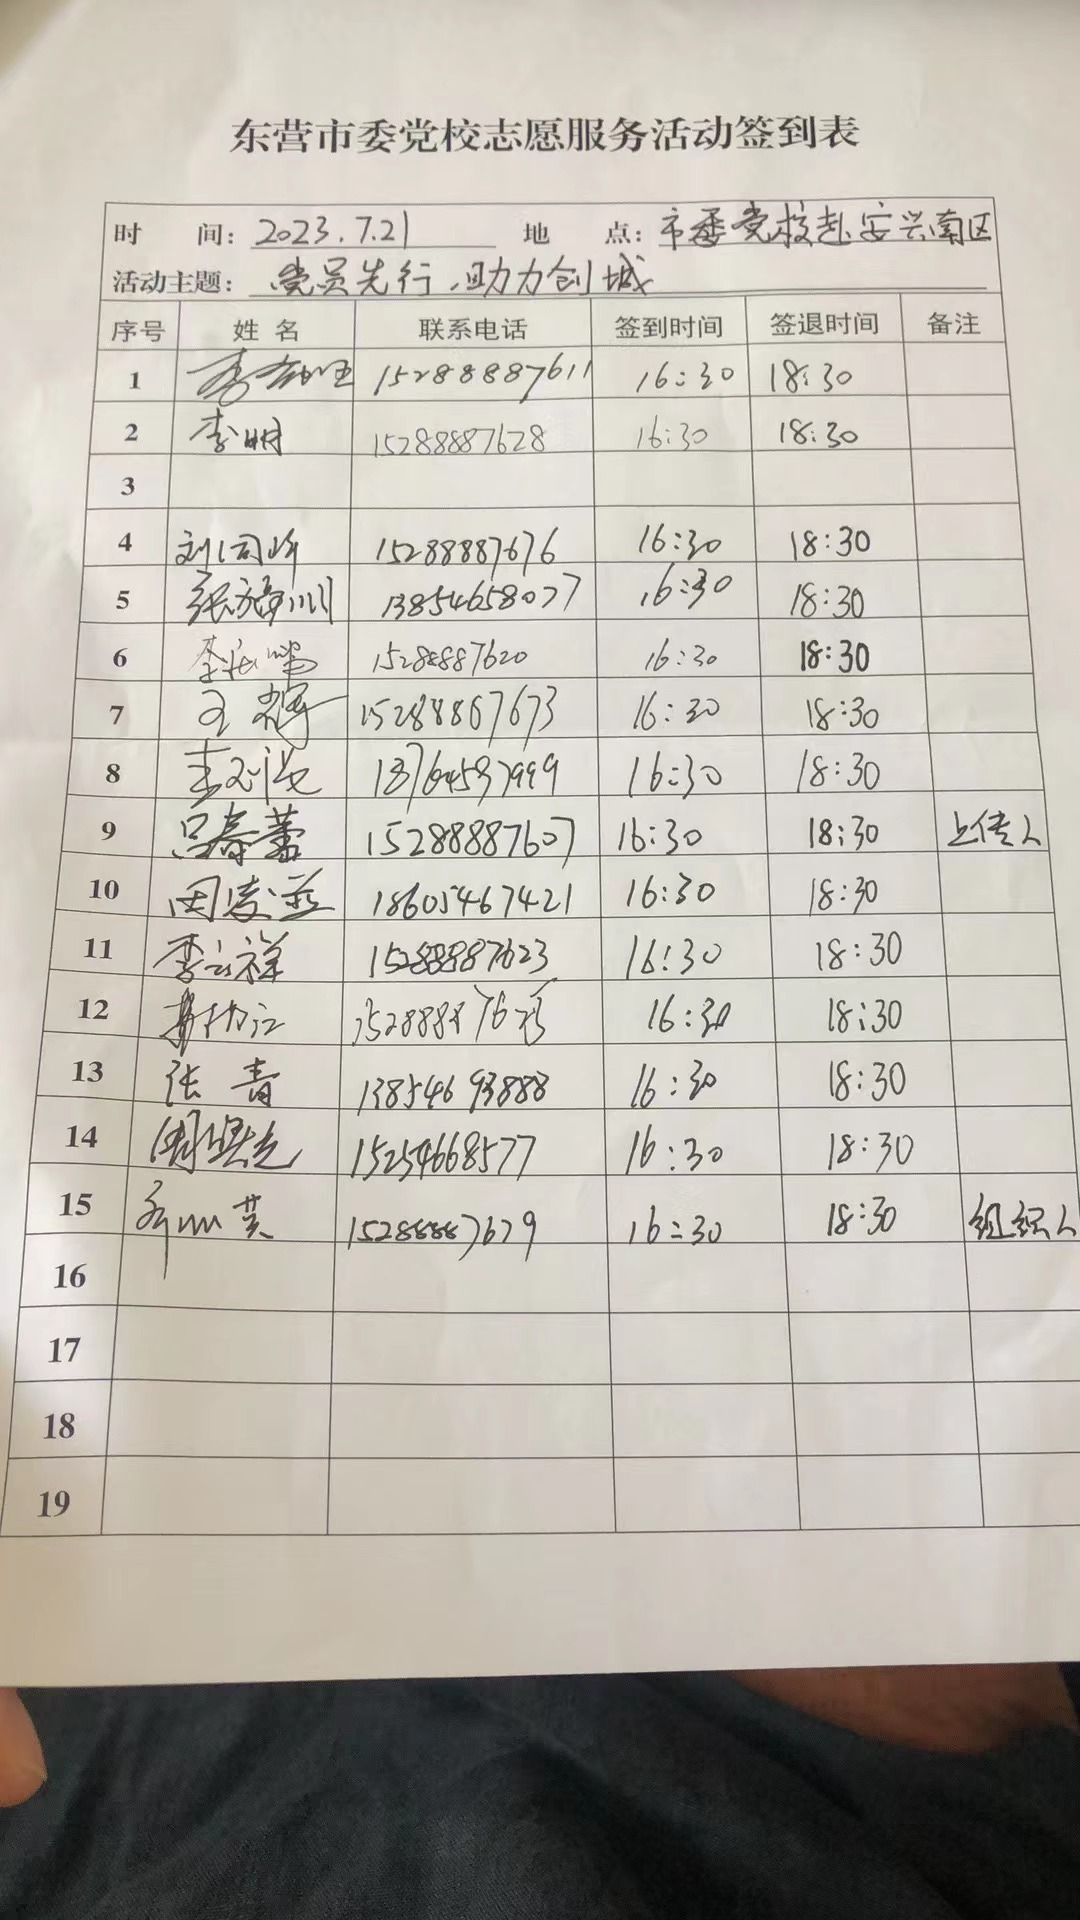 东营市委党校志愿服务活动签到表
时 间: 2023.7.21 地 点: 市委党校赴安兴南区
活动主题: 党员先行,助力创城
序号 姓名 联系电话 签到时间 签退时间 备注
1 李 15288887611 16:30 18:30
2 李明 15288887628 16:30 18:30
3
4 刘 15288887676 16:30 18:30
5 张 13854658077 16:30 18:30
6 李 15288887620 16:30 18:30
7 王辉 15288867673 16:30 18:30
8 16:30 18:30
9 吕春蕾 15288887607 16:30 18:30 上传人
10 田凌 18605467421 16:30 18:30
11 李云祥 15288887623 16:30 18:30
12 16:30 18:30
13 张青 13854693888 16:30 18:30
14 周 15254668577 16:30 18:30
15 16:30 18:30 组织人
16
17
18
19